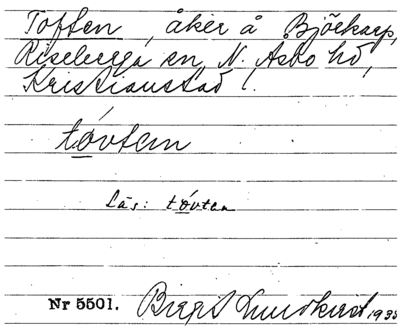 Toften, åker å Björkarp,
Riseberga sn, N. Åsbo hd,
Kristianstad l.
tóvten
Läs: tóvten
Nr 5501. Birgit Lundkvist 1935